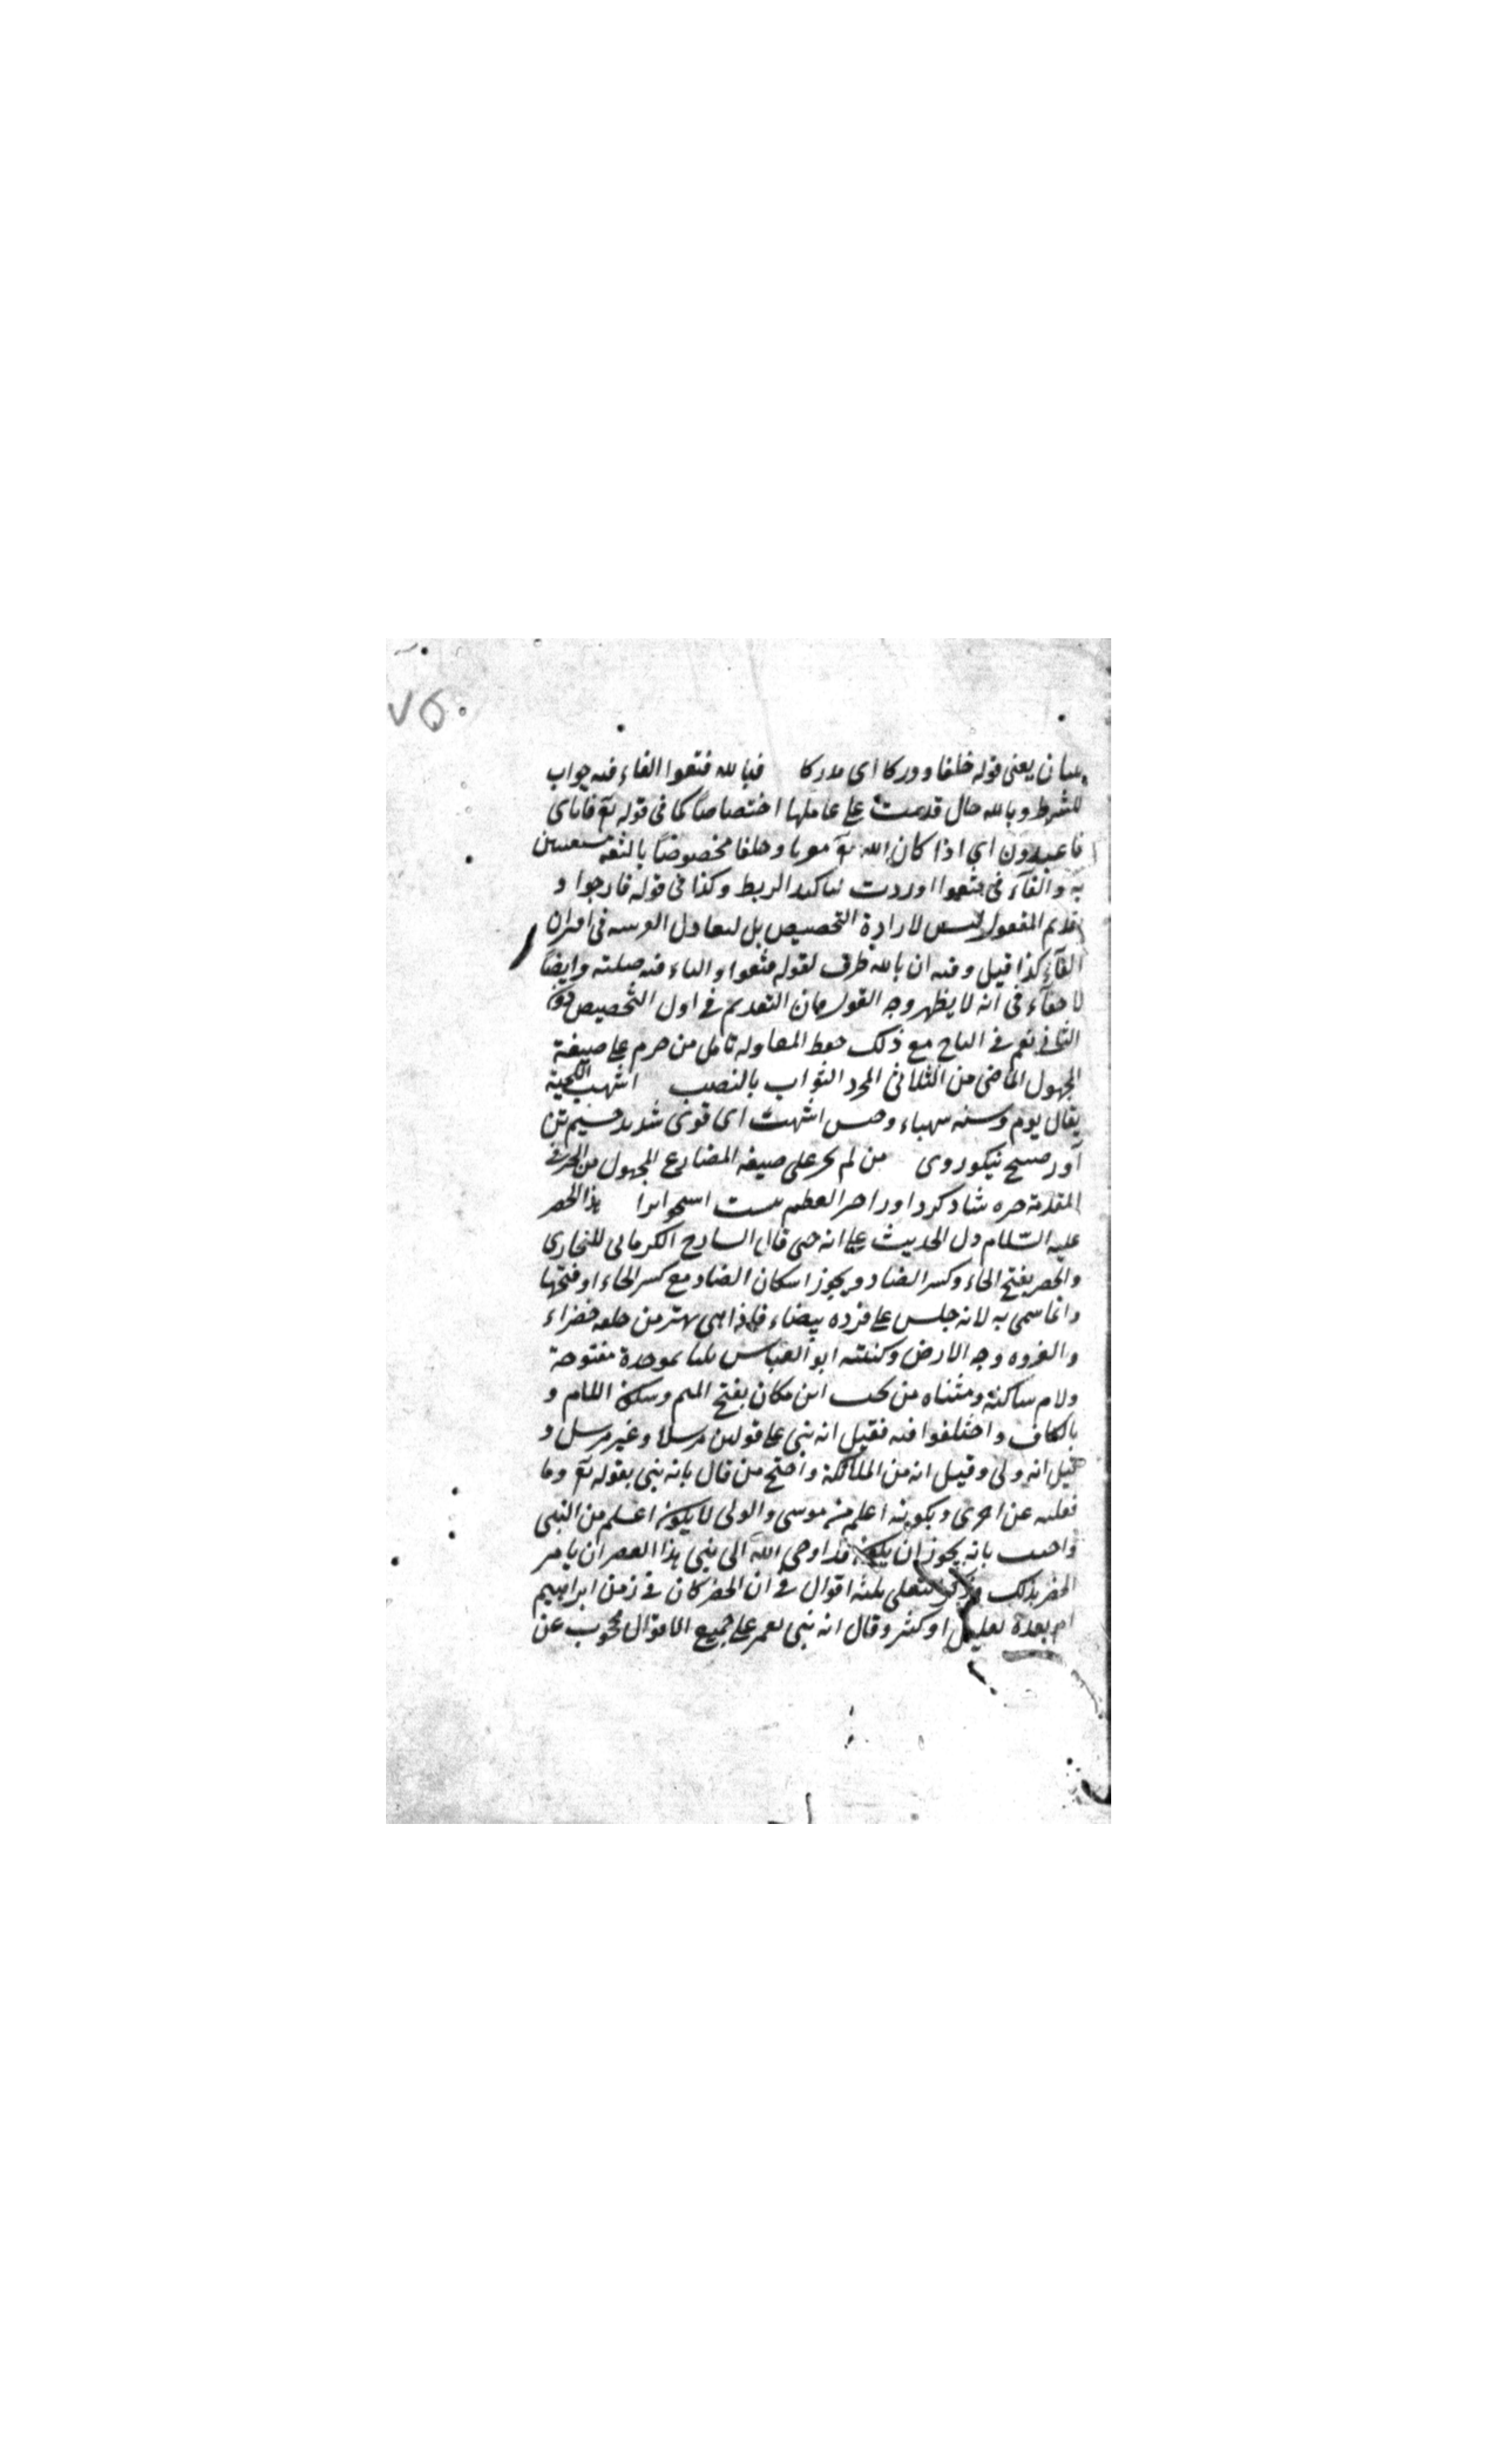 ٧٥
بيان يعني قوله خلفا ودركا اي مدركا فبالله فثقوا الفاء فيه جواب
للشرط وبالله حال قدمت على عاملها اختصاصا كما في قوله تع فاياي
فاعبدون اي اذا كان الله تع معزيا وخلفا مخصوصا بالثقة مستعينين
به والفاء في فثقوا اوردت لتاكيد الربط وكذا في قوله فارجوا و
تقديم المفعول ليس لارادة التخصيص بل لتعادل القرينة في اقتران
الفاء كذا قيل وفيه ان بالله ظرف لقوله فثقوا والباء فيه صلته وايضا
لا خفاء في انه لا يظهر وجه القول بان التقديم في اول التخصيص دون
الثاني نعم في مع ذلك تامل من حرم على صيغة
المجهول الماضي من الثلاثي المجرد الثواب بالنصب اشهب اللحية
يقال يوم وسنة شهباء وجيش اشهب اي قوي شديد جسيم تن
آور صبيح نيكو روى من لم يجر على صيغة المضارع المجهول من
المقدمة شاد كرد اورا هذا الخضر
عليه السلام دل الحديث على انه حي قال الشارح الكرماني للبخاري
والخضر بفتح الخاء وكسر الضاد ويجوز اسكان الضاد مع كسر الخاء او فتحها
وانما سمي به لانه جلس على فروة بيضاء فاذا هي تهتز من خلفه خضراء
والفروة وجه الارض وكنيته ابو العباس بليا بموحدة مفتوحة
ولام ساكنة ومثناه من تحت ابن مكان بفتح الميم وسكون اللام و
بالكاف واختلفوا فيه فقيل انه نبي على قولين مرسل وغير مرسل و
قيل انه ولي وقيل انه من الملائكة واحتج من قال بانه نبي بقوله تع وما
فعلته عن امري وبكونه اعلم من موسى والولي لا يكون اعلم من النبي
واجيب بانه يجوز ان يكون قد اوحى الله الى نبي هذا العصر ان يامر
الخضر بذلك وذكر الثعلبي ثلثة اقوال في ان الخضر كان في زمن ابراهيم
ام بعده بقليل او كثير وقال انه نبي معمر على جميع الاقوال محجوب عن